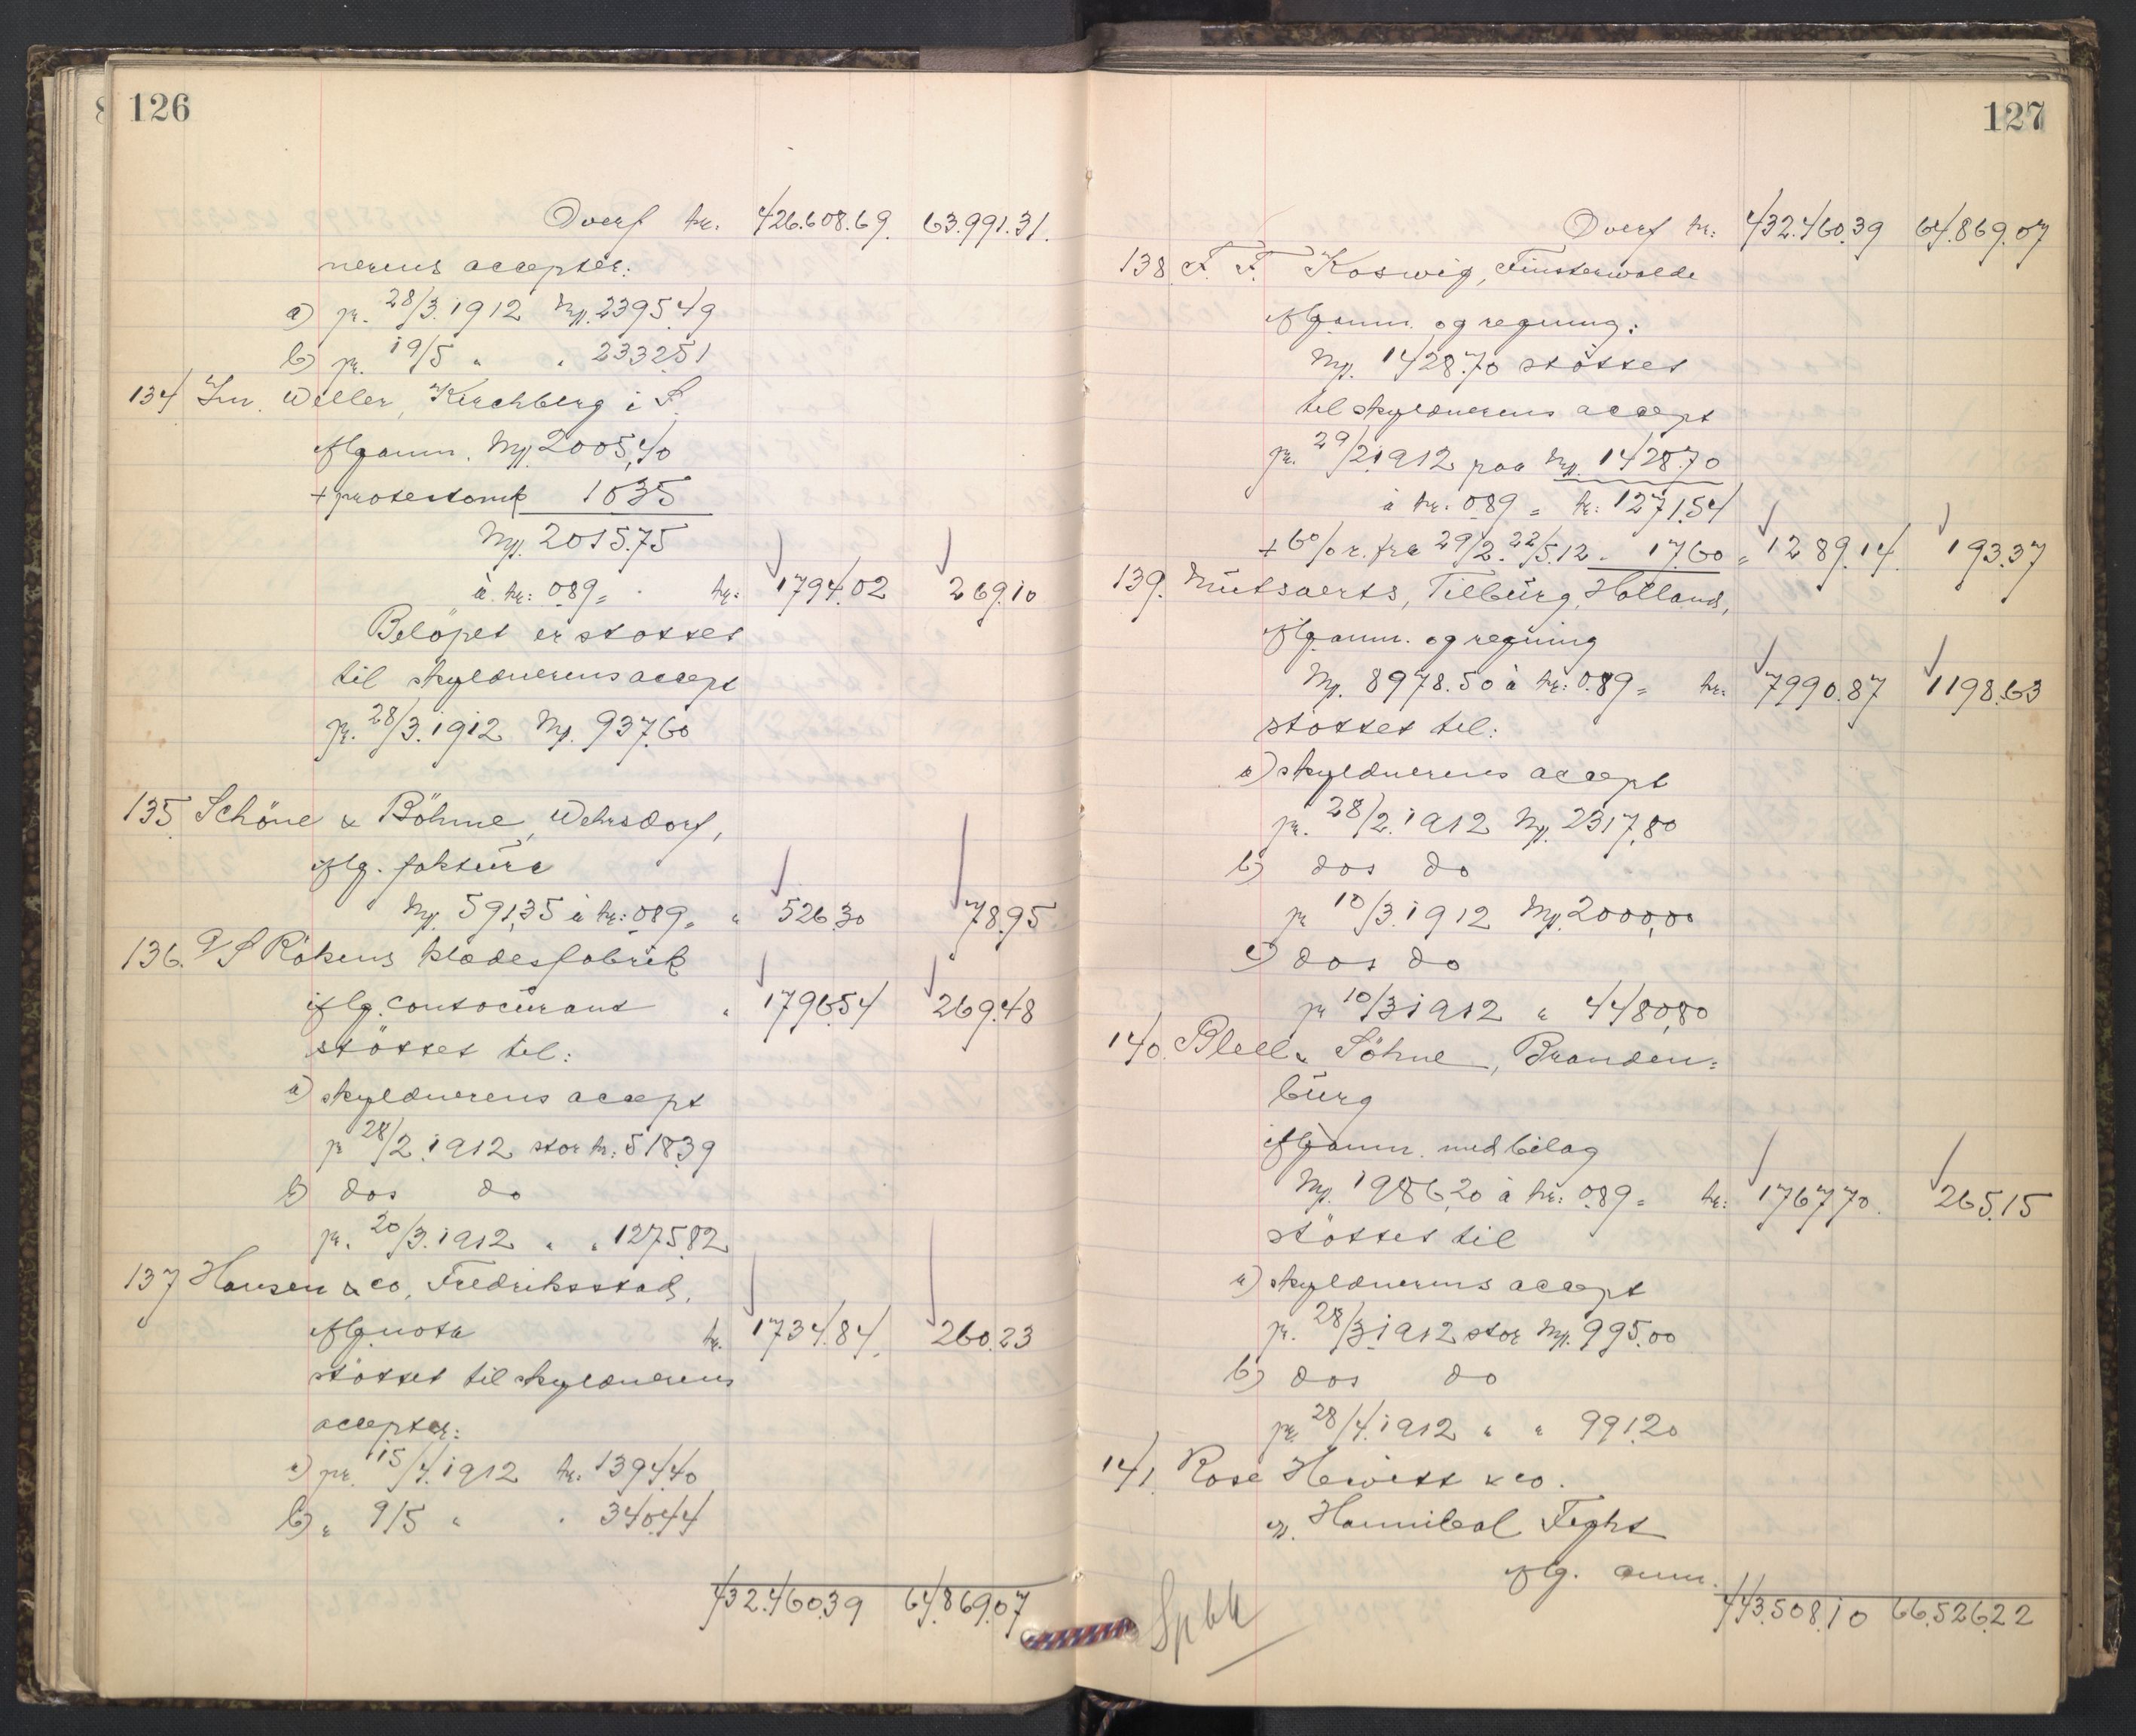 126
Overf kr. 426.608.69. 63.991.31.
nerens accepter:
a) pr. 28/3. 1912 Mk. 2395.49
b) pr. 19/5 " " 2332.51
134 Im. Weller, Kirchberg i S.
iflg anm. Mk. 2005,40
+ protestomk 10.35
Mk. 2015.75
à kr: 0.89 = kr: 1794.02 269.10
Belöpet er støttet
til skyldnerens accept
pr. 28/3. 1912 Mk. 937.60
135. Schöne & Böhme, Wehrsdorf,
iflg. faktura
Mk. 591,35 à kr: 0.89 = " 526.30 78.95
136. A/S Røkens klædesfabrik
iflg. contocurant " 1796.54 269.48
støttet til:
a) skyldnerens accept
pr 28/2. 1912 stor kr: 518.39
b) dos do
pr. 20/3. 1912 " " 1275.82
137 Hansen & co, Fredriksstad,
iflg nota kr. 1734.84. 260.23
støttet til skyldnerens
accepter:
a) pr. 15/4. 1912 kr. 1394.40
b) " 9/5 " " 340.44
432.460.39 64.869.07
127
Overf kr: 432.460.39 64.869.07
138. F. F. Koswig, Finsterwalde
iflg anm. og regning:
Mk. 1428.70 støttet
til skyldnerens accept
pr. 29/2 1912 paa Mk. 1428.70
à kr: 0.89 = kr: 1271.54
+ 6% r. fra 29/2. 22/5.12 - 17.60 = 1289.14. 193.37
139. Mutsaerts, Tilburg, Holland,
iflg anm. og regning
Mk. 8978.50 à kr: 0.89 = kr. 7990.87 1198.63
støttet til:
a) skyldnerens accept
pr. 28/2. 1912 Mk. 2317,80
b) dos do
pr 10/3. 1912 Mk. 2000,00
c) dos do
pr 10/3 1912 " 4480,80
140. Blell & Söhne, Branden=
burg
iflg anm. med bilag
Mk. 1986,20 à kr: 0.89 = kr: 1767.70. 265.15
støttet til
a) skyldnerens accept
pr. 28/3 1912 stor Mk. 995.00
b) dos do
pr. 28/4. 1912 " " 991.20
141. Rose Hewitt & co.
v. Hannibal Feght
iflg. anm.
443.508.10 66.526.22